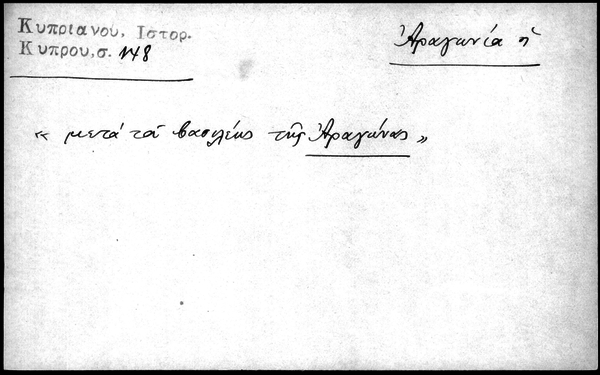 Κυπριανού, Ιστορ.
Κυπρου, σ. 148
Ἀραγωνία ἡ
« μετὰ τοῦ βασιλέως τῆς Ἀραγώνας »